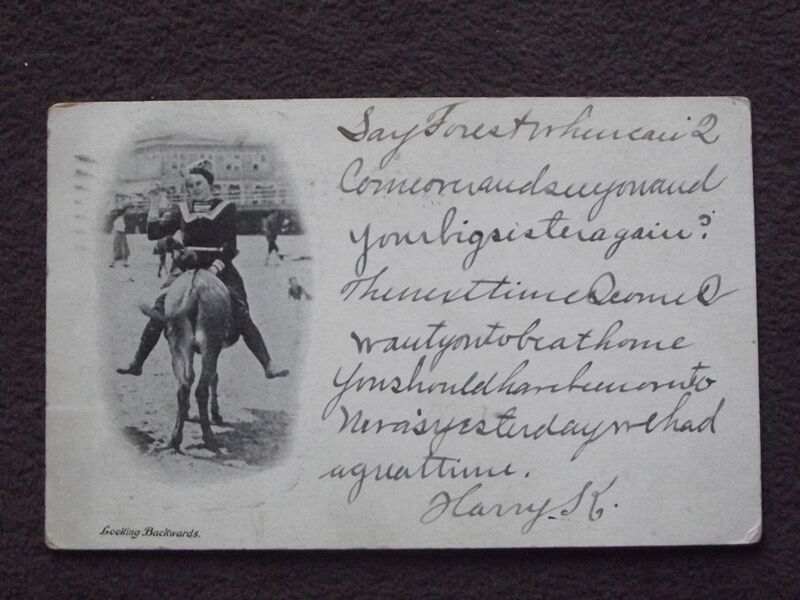 Say Forest when can I
Come over and see you and
your big sister again?
The next time I come I
want you to be at home
You should have been over to
Neva's yesterday we had
a great time.
Harry. K.
Looking Backwards.